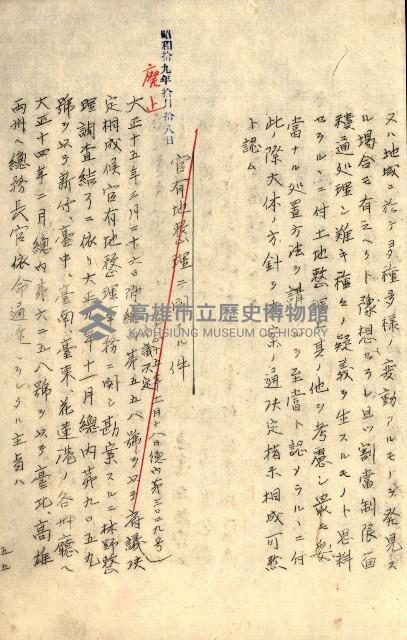 又ハ地域ニ於テ多種多様ノ変動アルモノヲ発見ス
ル場合モ有之ヘクト豫想セラレ且ツ割當制限面
積通処理シ難キ種々ノ疑義ヲ生スルモノト思料
セラルヽニ付土地整理其ノ他ヲ考慮シ最モ妥
當ナル処置方法ヲ講スルヲ至當ト認メラルヽニ付
此ノ際大体ノ方針ヲ案ノ通決定指示相成可然
ト認ム
昭和拾九年拾月拾八日
廃止
官有地整理ニ関スル件
十一月十八日總内第三〇二九号
大正十五年三月二十六日附總内第五五八號ヲ以テ府議決
定相成候官有地整理事務ニ関シ勘案スルニ林野整
理調査結了ニ依リ大正十年十一月總内第九〇五九
號ヲ以テ新竹、臺中、臺南臺東花蓮港ノ各州廳ヘ
大正十四年二月總内第六二五八號ヲ以テ臺北高雄
両州ヘ總務長官依命通達セラレタル主旨ハ
五五
高雄市立歷史博物館
KAOHSIUNG MUSEUM OF HISTORY